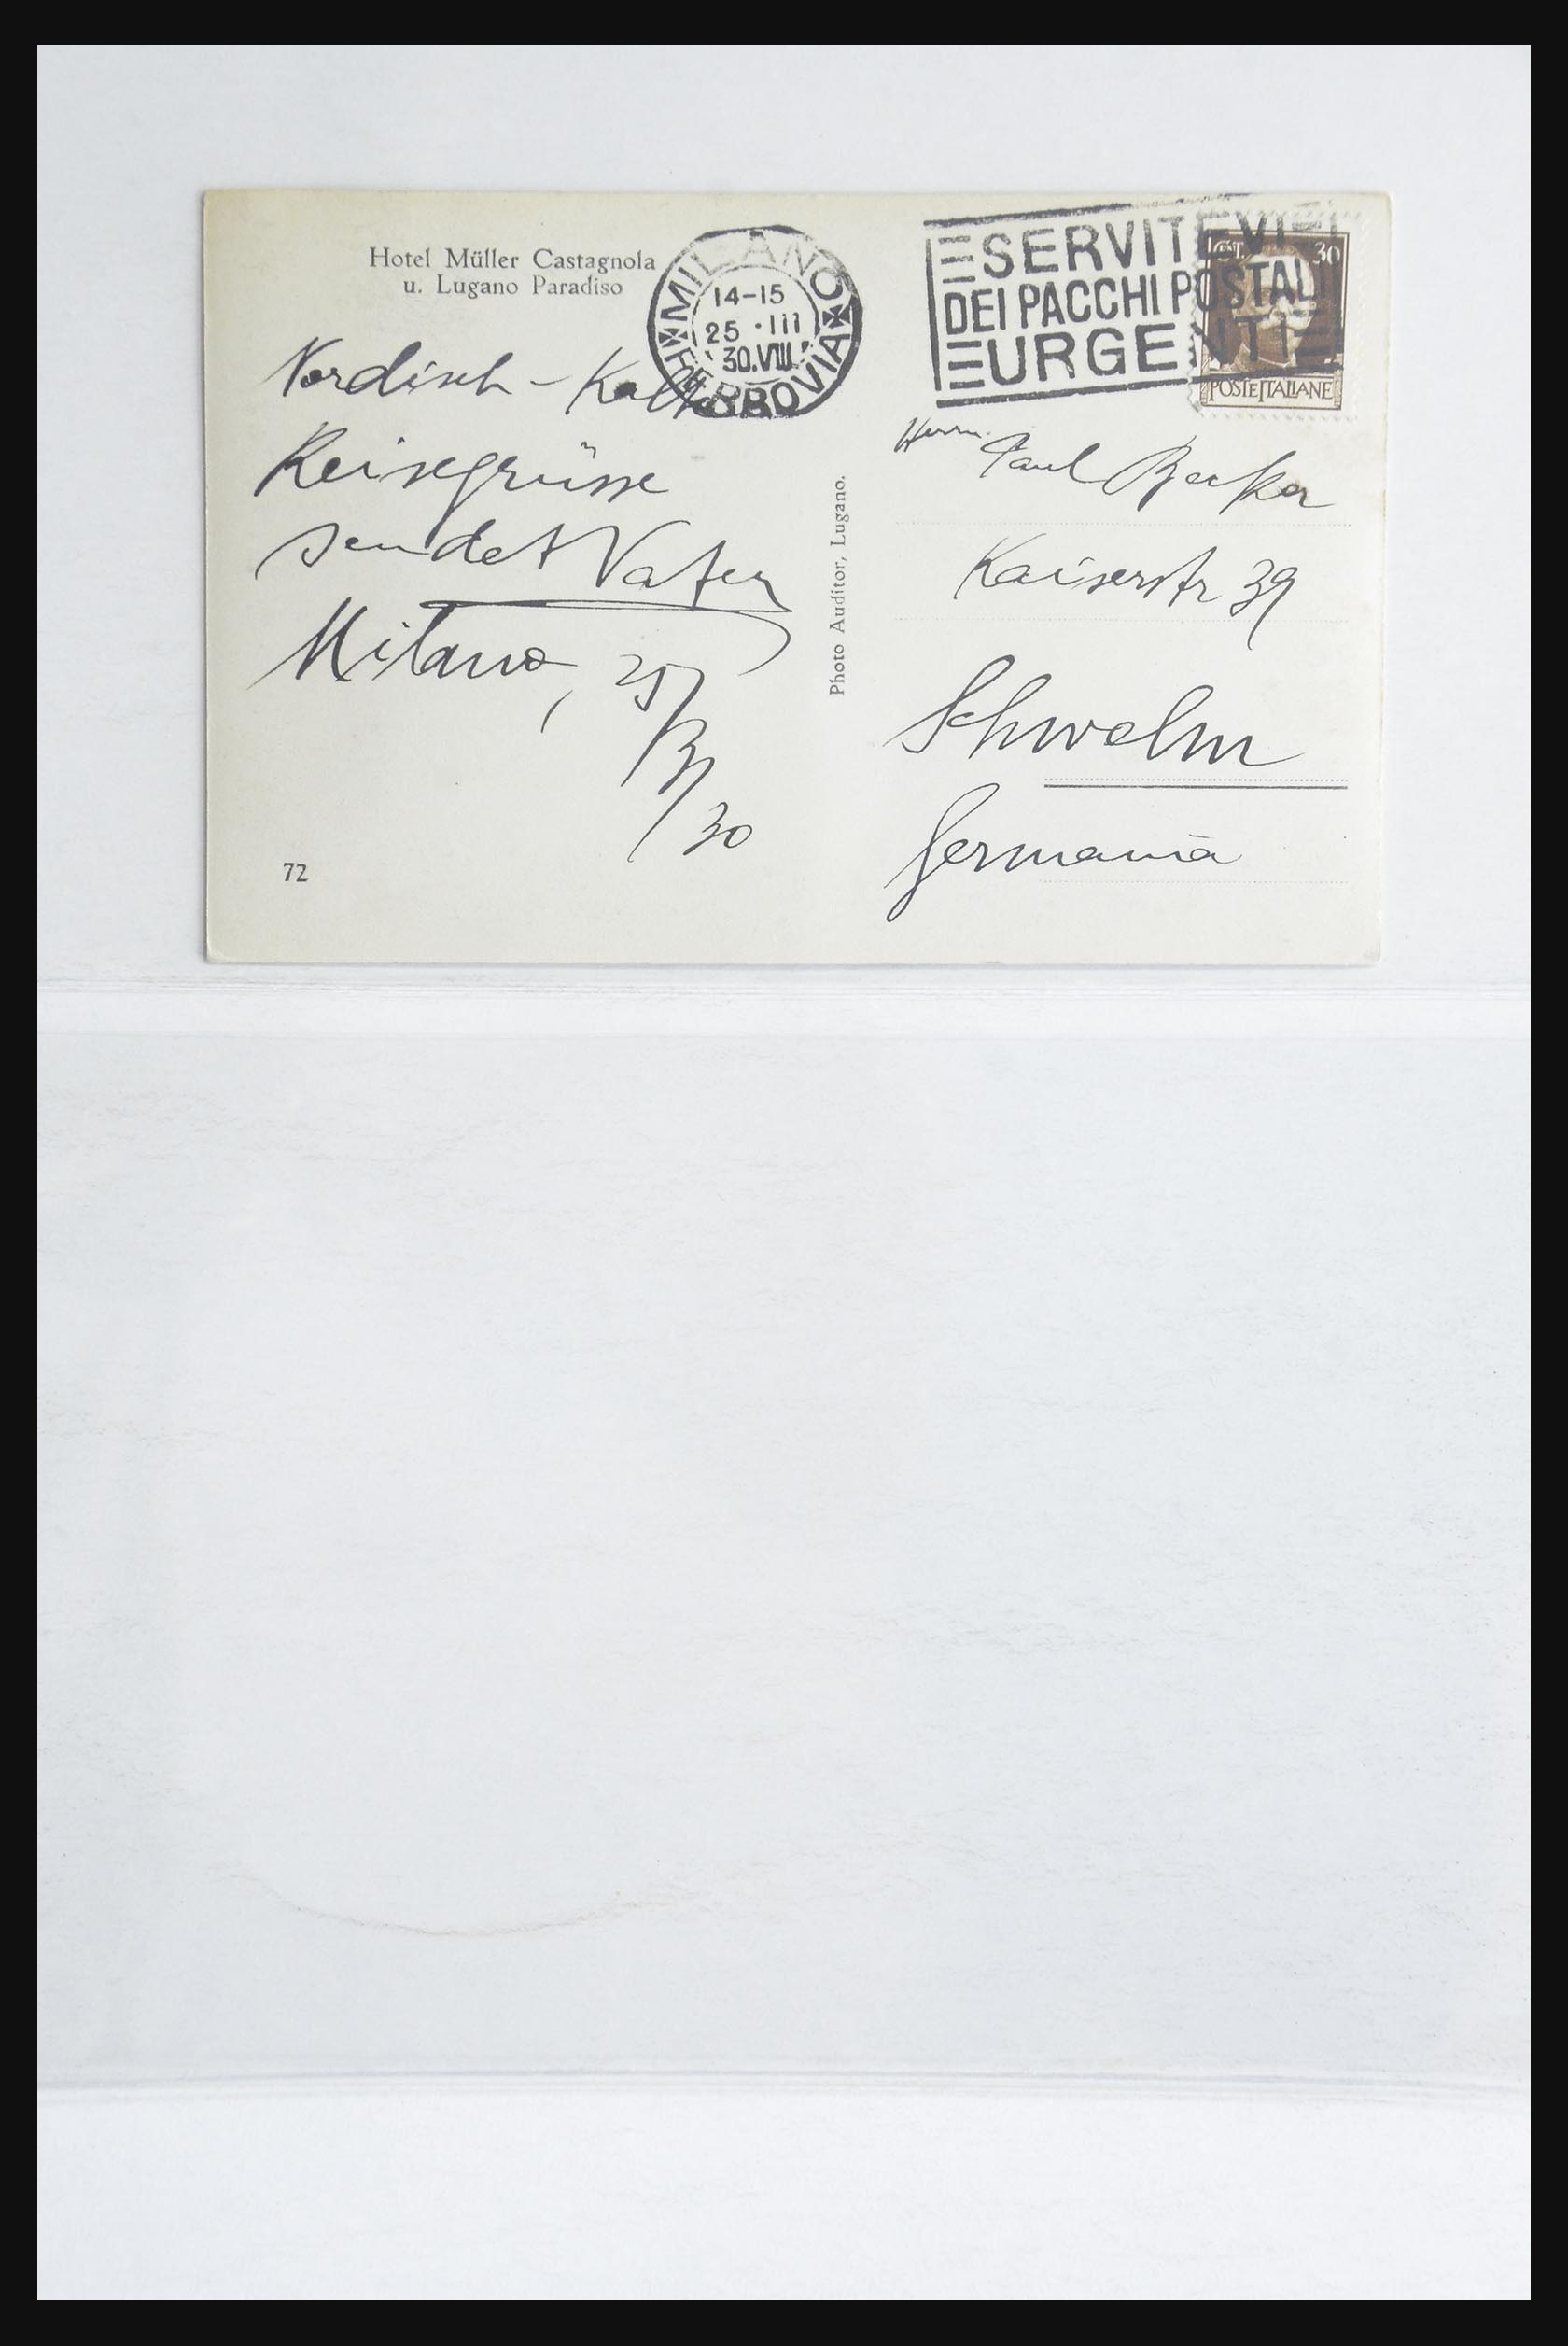 Hotel Müller Castagnola
u. Lugano Paradiso
MILANO
14-15
25 · III
30.VIII
FERROVIA
SERVITEVI
DEI PACCHI POSTALI
URGENTI
CENT. 30
POSTE ITALIANE
Nordisch - Kalte
Reisegrüsse
sendet Vater
Milano, 25/3/30
72
Photo Auditor, Lugano.
Herrn Paul Becker
Kaiserstr 39
Schwelm
Germania